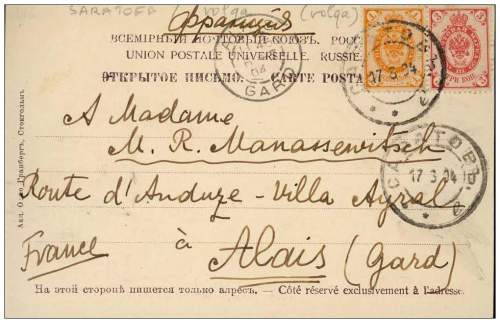 SARATOFF Volga (volga)
Франція
ВСЕМІРНЫЙ ПОЧТОВЫЙ СОЮЗЪ. РОСС
UNION POSTALE UNIVERSELLE. RUSSIE
ОТКРЫТОЕ ПИСЬМО. — CARTE POSTA
GARD
17 3 04
3 3
A Madame
M. R. Manassewitsch
САРАТОВЪ
17 3 04
Route d'Anduze - Villa Ayral
à
France
Alais (Gard)
На этой сторонѣ пишется только адресъ. — Côté réservé exclusivement à l'adresse.
Акц. О-во Гранбергъ, Стокгольмъ